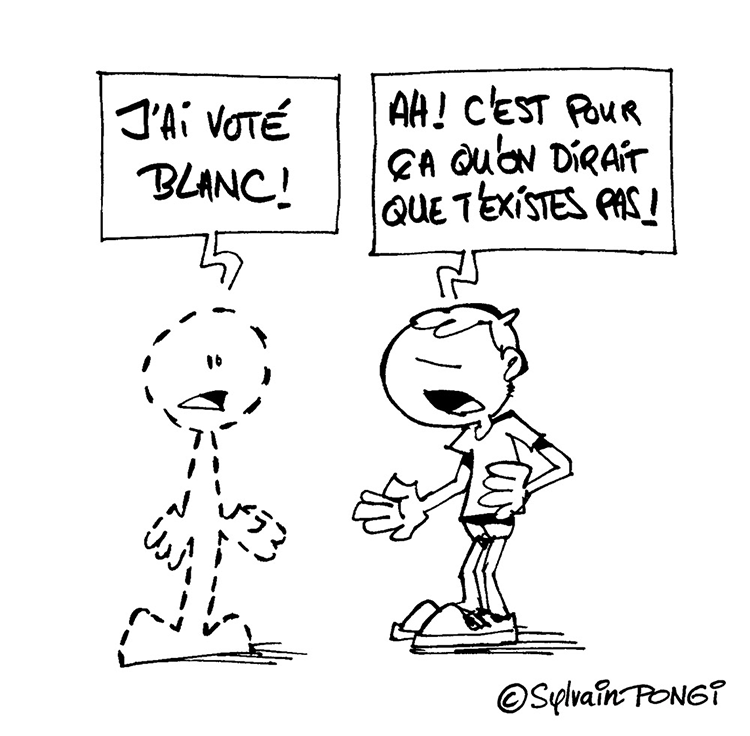 J'Ai VOTÉ
BLANC!
AH! C'EST POUR
ÇA QU'ON DiRAiT
QUE T'EXiSTES PAS!
©Sylvain PONGi